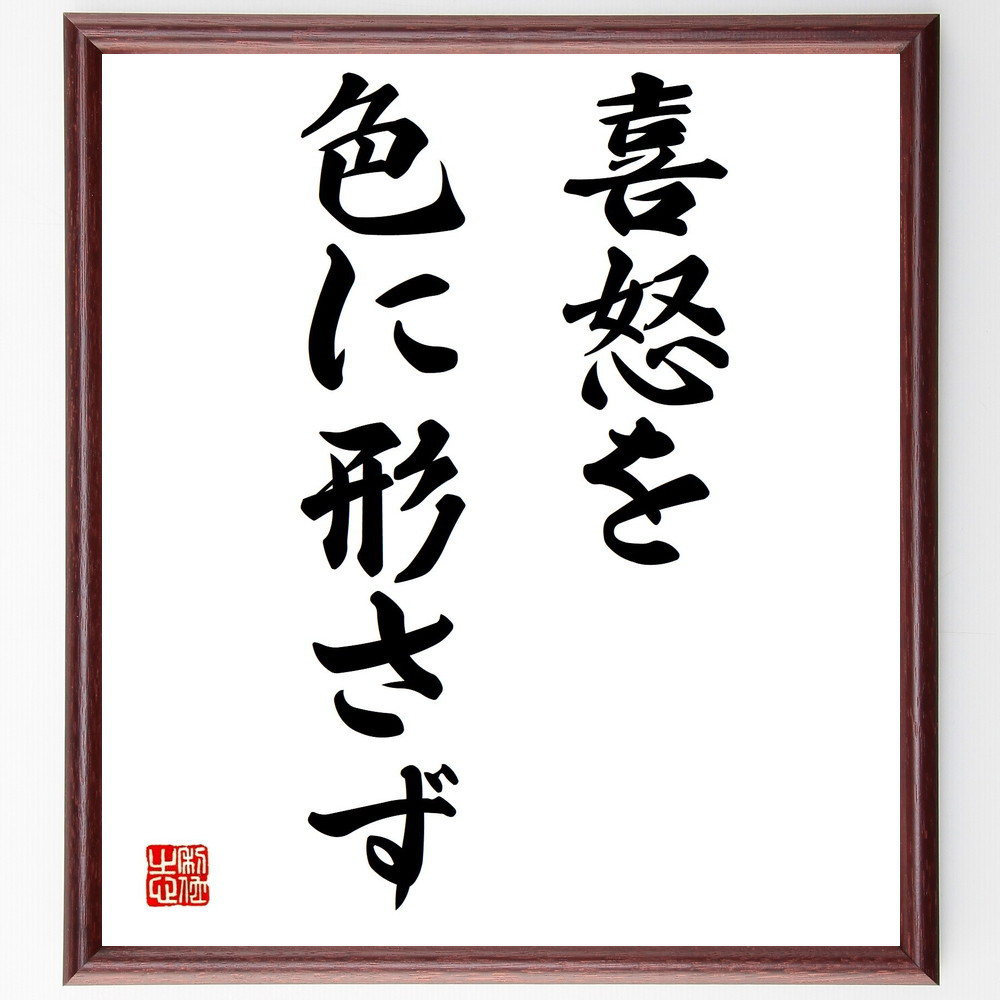 喜怒を
色に形さず